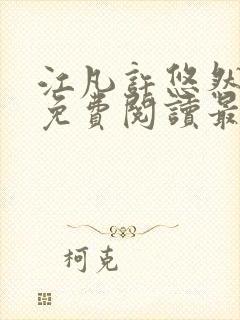 江凡許悠然
免費閱讀最
柯克